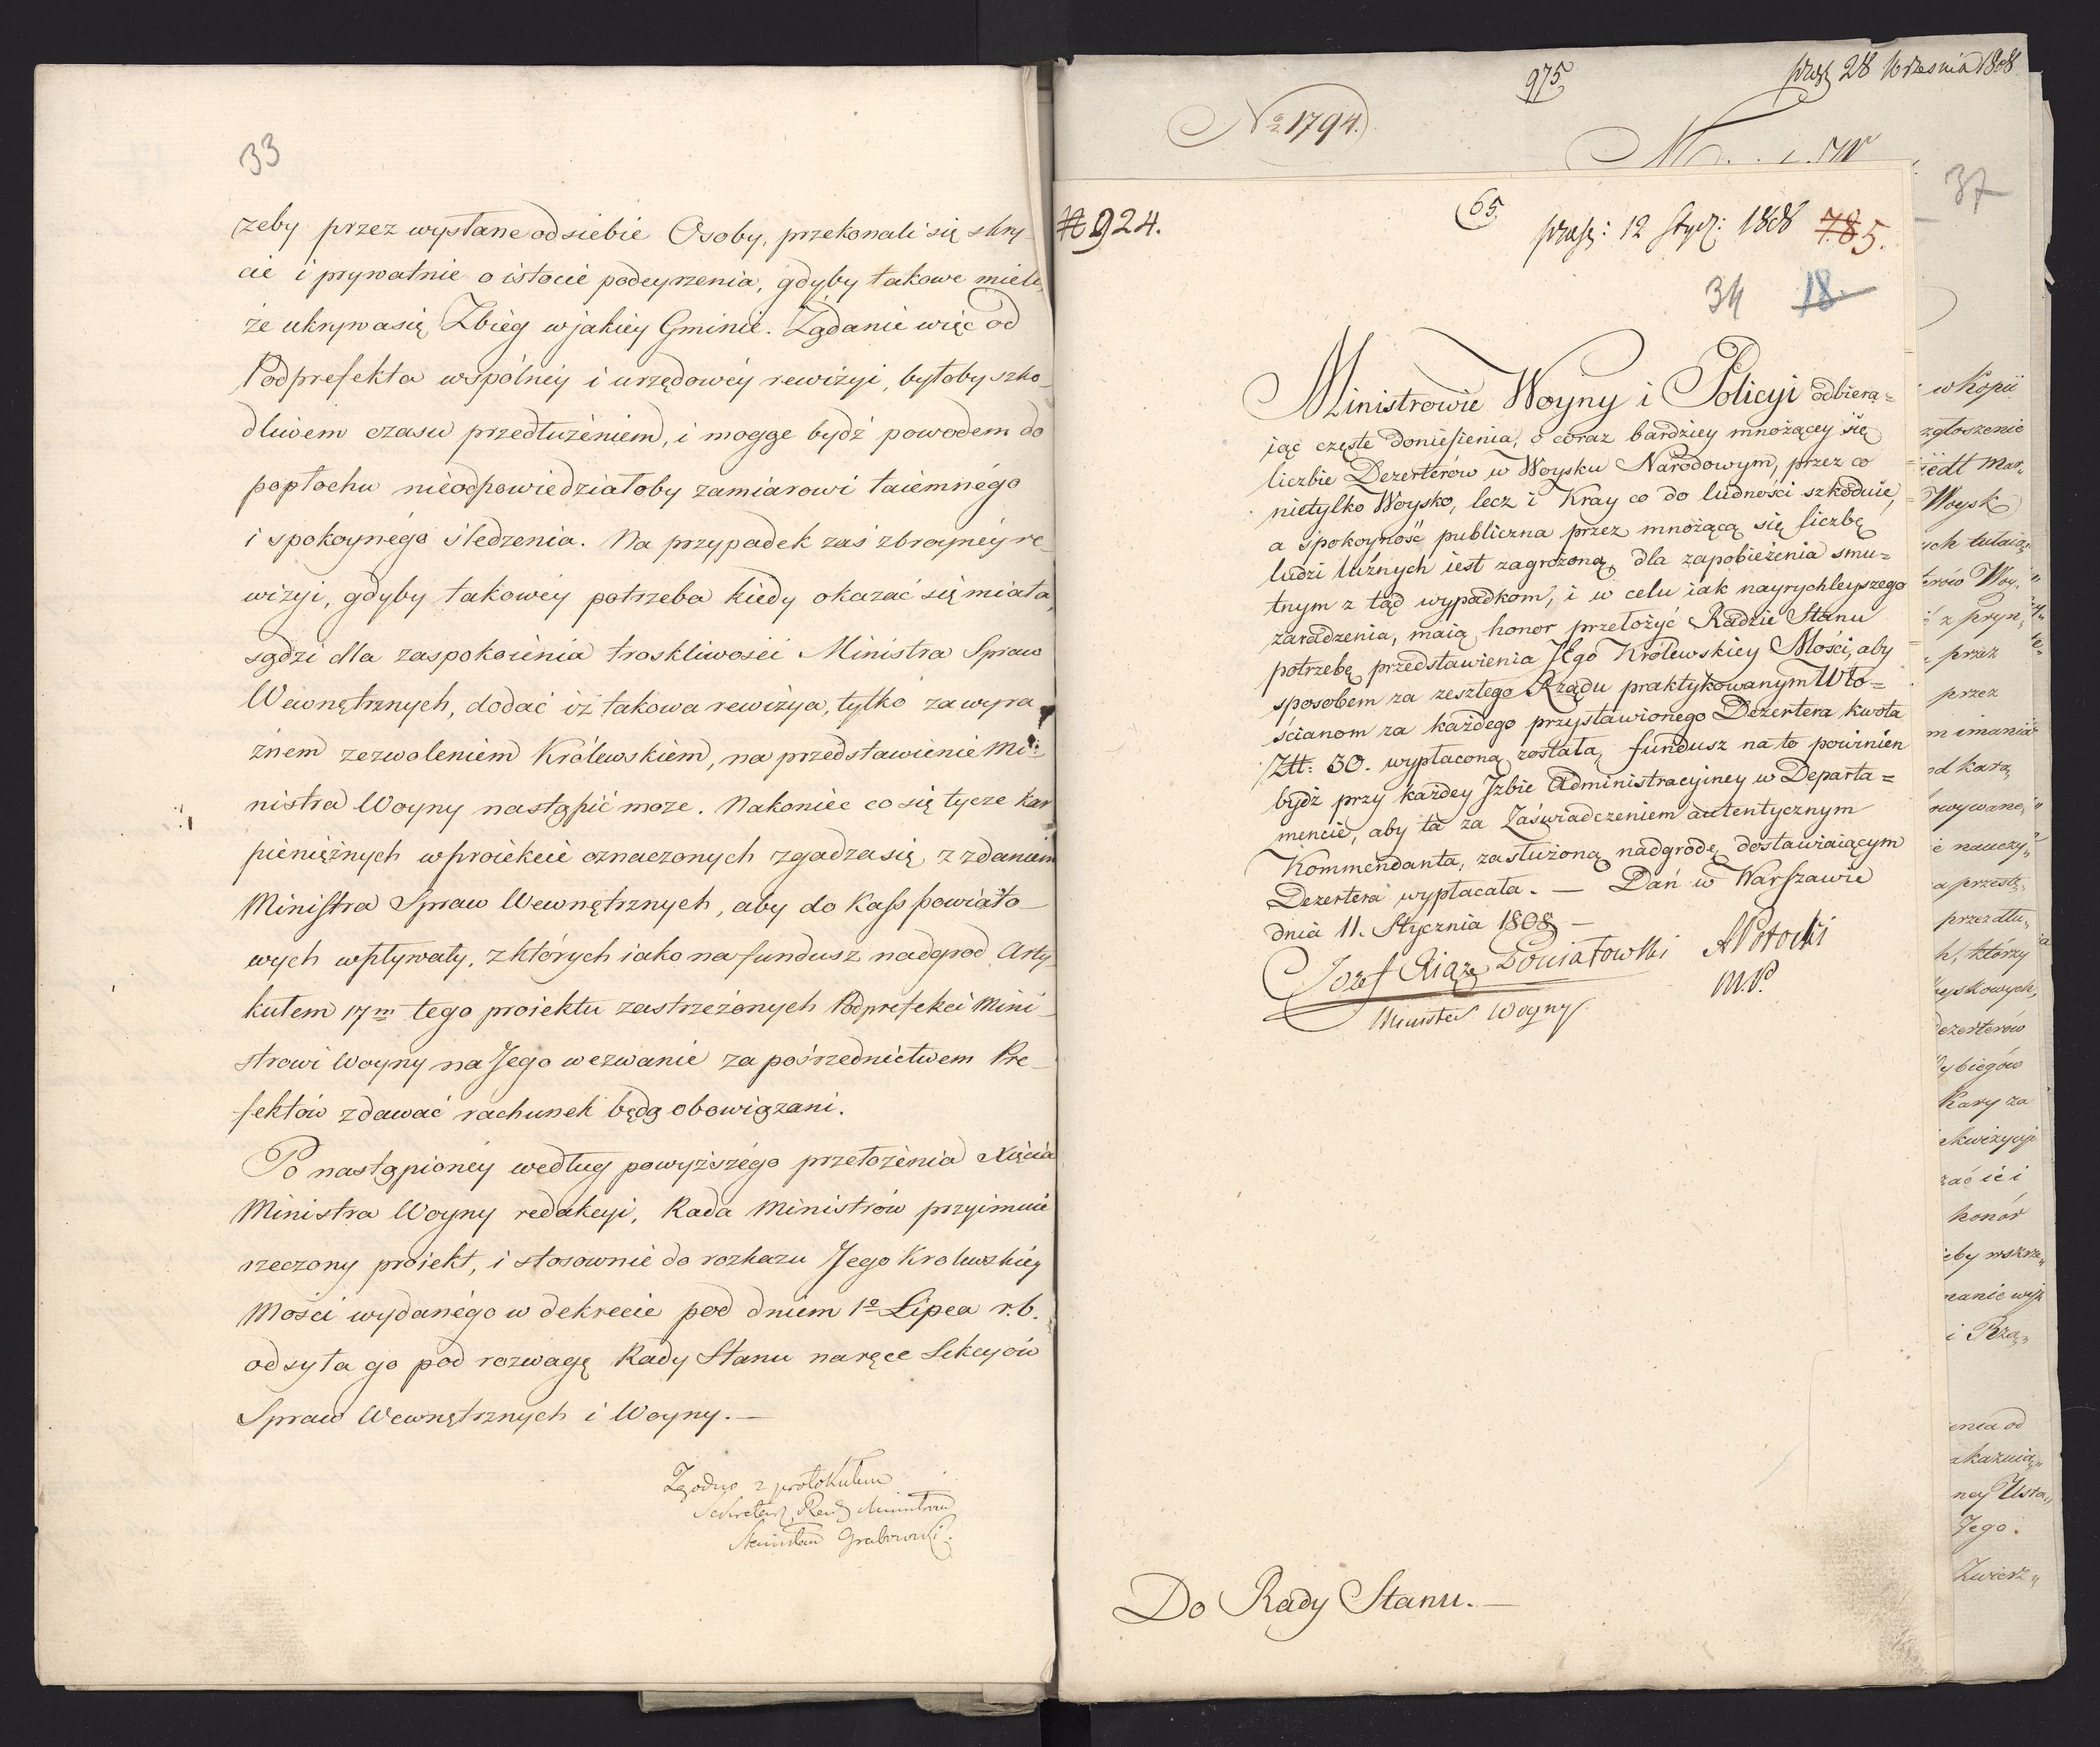 33
żeby przez wysłane od siebie Osoby, przekonali się skry-
cie i prywatnie o istocie podeyrzenia, gdyby takowe mieli,
że ukrywa się Zbieg w jakiey Gminie. Żądanie więc od
Podprefekta wspólney i urzędowéy rewizyi, byłoby szko-
dliwem czasu przedłużeniem, i mogąc bydź powodem do
popłochu nieodpowiedziałoby zamiarowi taiemnégo
i spokoynégo śledzenia. Na przypadek zaś zbroynéy re-
wizyi, gdyby takowéy potrzeba kiedy okazać się miała,
sądzi dla zaspokoienia troskliwości Ministra Spraw
Wewnętrznych, dodać iż takowa rewizya, tylko za wyra-
źnem zezwoleniem Królewskiem, na przedstawienie Mi-
nistra Woyny nastąpić może. Nakoniec co się tycze kar
pieniężnych w proiekcie oznaczonych zgadza się z zdaniem
Ministra Spraw Wewnętrznych, aby do Kass powiato-
wych wpływały, z których iako na fundusz nadgrod Arty-
kułem 17m tego proiektu zastrzeżonych Podprefekci Mini-
strowi Woyny na Jego wezwanie za pośrednictwem Pre-
fektów zdawać rachunek będą obowiązani.
Po nastąpionéy według powyższégo przełożenia Xięcia
Ministra Woyny redakcyi, Rada Ministrów przyimuie
rzeczony proiekt, i stosownie do rozkazu Jego Krolewskiéy
Mości wydanégo w dekrecie pod dniem 1o Lipca r.b.
odsyła go pod rozwagę Rady Stanu na ręce Sekcyów
Spraw Wewnętrznych i Woyny.—
Zgodno z protokułem
Sekretarz Rady Ministrów
Stanisław Grabowski.
975
28 Września 1808
No 1794.
37
# 924.
65.
12 Stycz: 1808 785.
34 18.
Ministrowie Woyny i Policyi odbiera=
iąc częste doniesienia, o coraz bardziey mnożącey się
liczbie Dezerterów w Woysku Narodowym, przez co
nietylko Woysko, lecz i Kray co do ludności szkoduie,
a spokoyność publiczna przez mnożącą się liczbę
ludzi luźnych iest zagrożoną, dla zapobieżenia smu=
tnym z tąd wypadkom, i w celu iak nayrychleyszego
zaradzenia, maią honor przełożyć Radzie Stanu
potrzebę przedstawienia JEgo Królewskiey Mości, aby
sposobem za zeszłego Rządu praktykowanym Wło=
ścianom za każdego przystawionego Dezertera kwota
Złł: 30. wypłacona została, fundusz na to powinien
bydź przy każdey Izbie Administracyiney w Departa=
mencie, aby ta za Zaświadczeniem autentycznym
Kommendanta, zasłużoną nadgrodę dostawiaiącym
Dezertera wypłacała. — Dań w Warszawie
dnia 11. Stycznia 1808 —
Jozef Xiąże Poniatowski APotocki
Minister Woyny M.P.
Do Rady Stanu.—
w Kopii
zgłoszenie
Woysk
przez
przez
od kara
przez dłu„
którzy
Dezerterów
Kary za
honór
Jego.